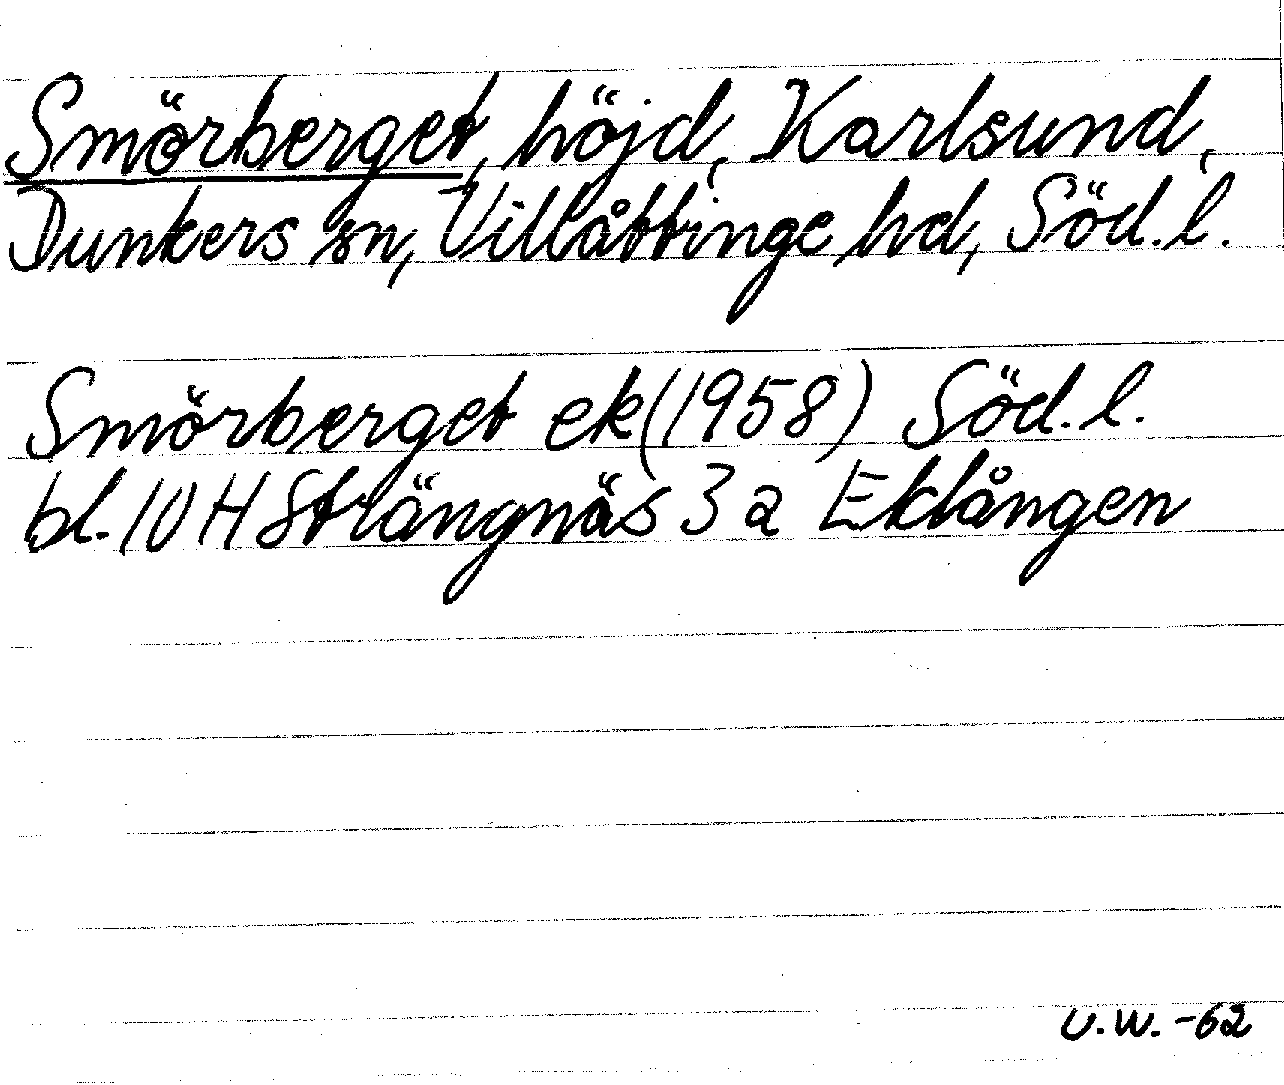 Smörberget, höjd, Karlsund,
Dunkers sn, Villåttinge hd, Söd. l.
Smörberget ek (1958) Söd. l.
bl. 10 H Strängnäs 3 a Eklången
U.W. -62